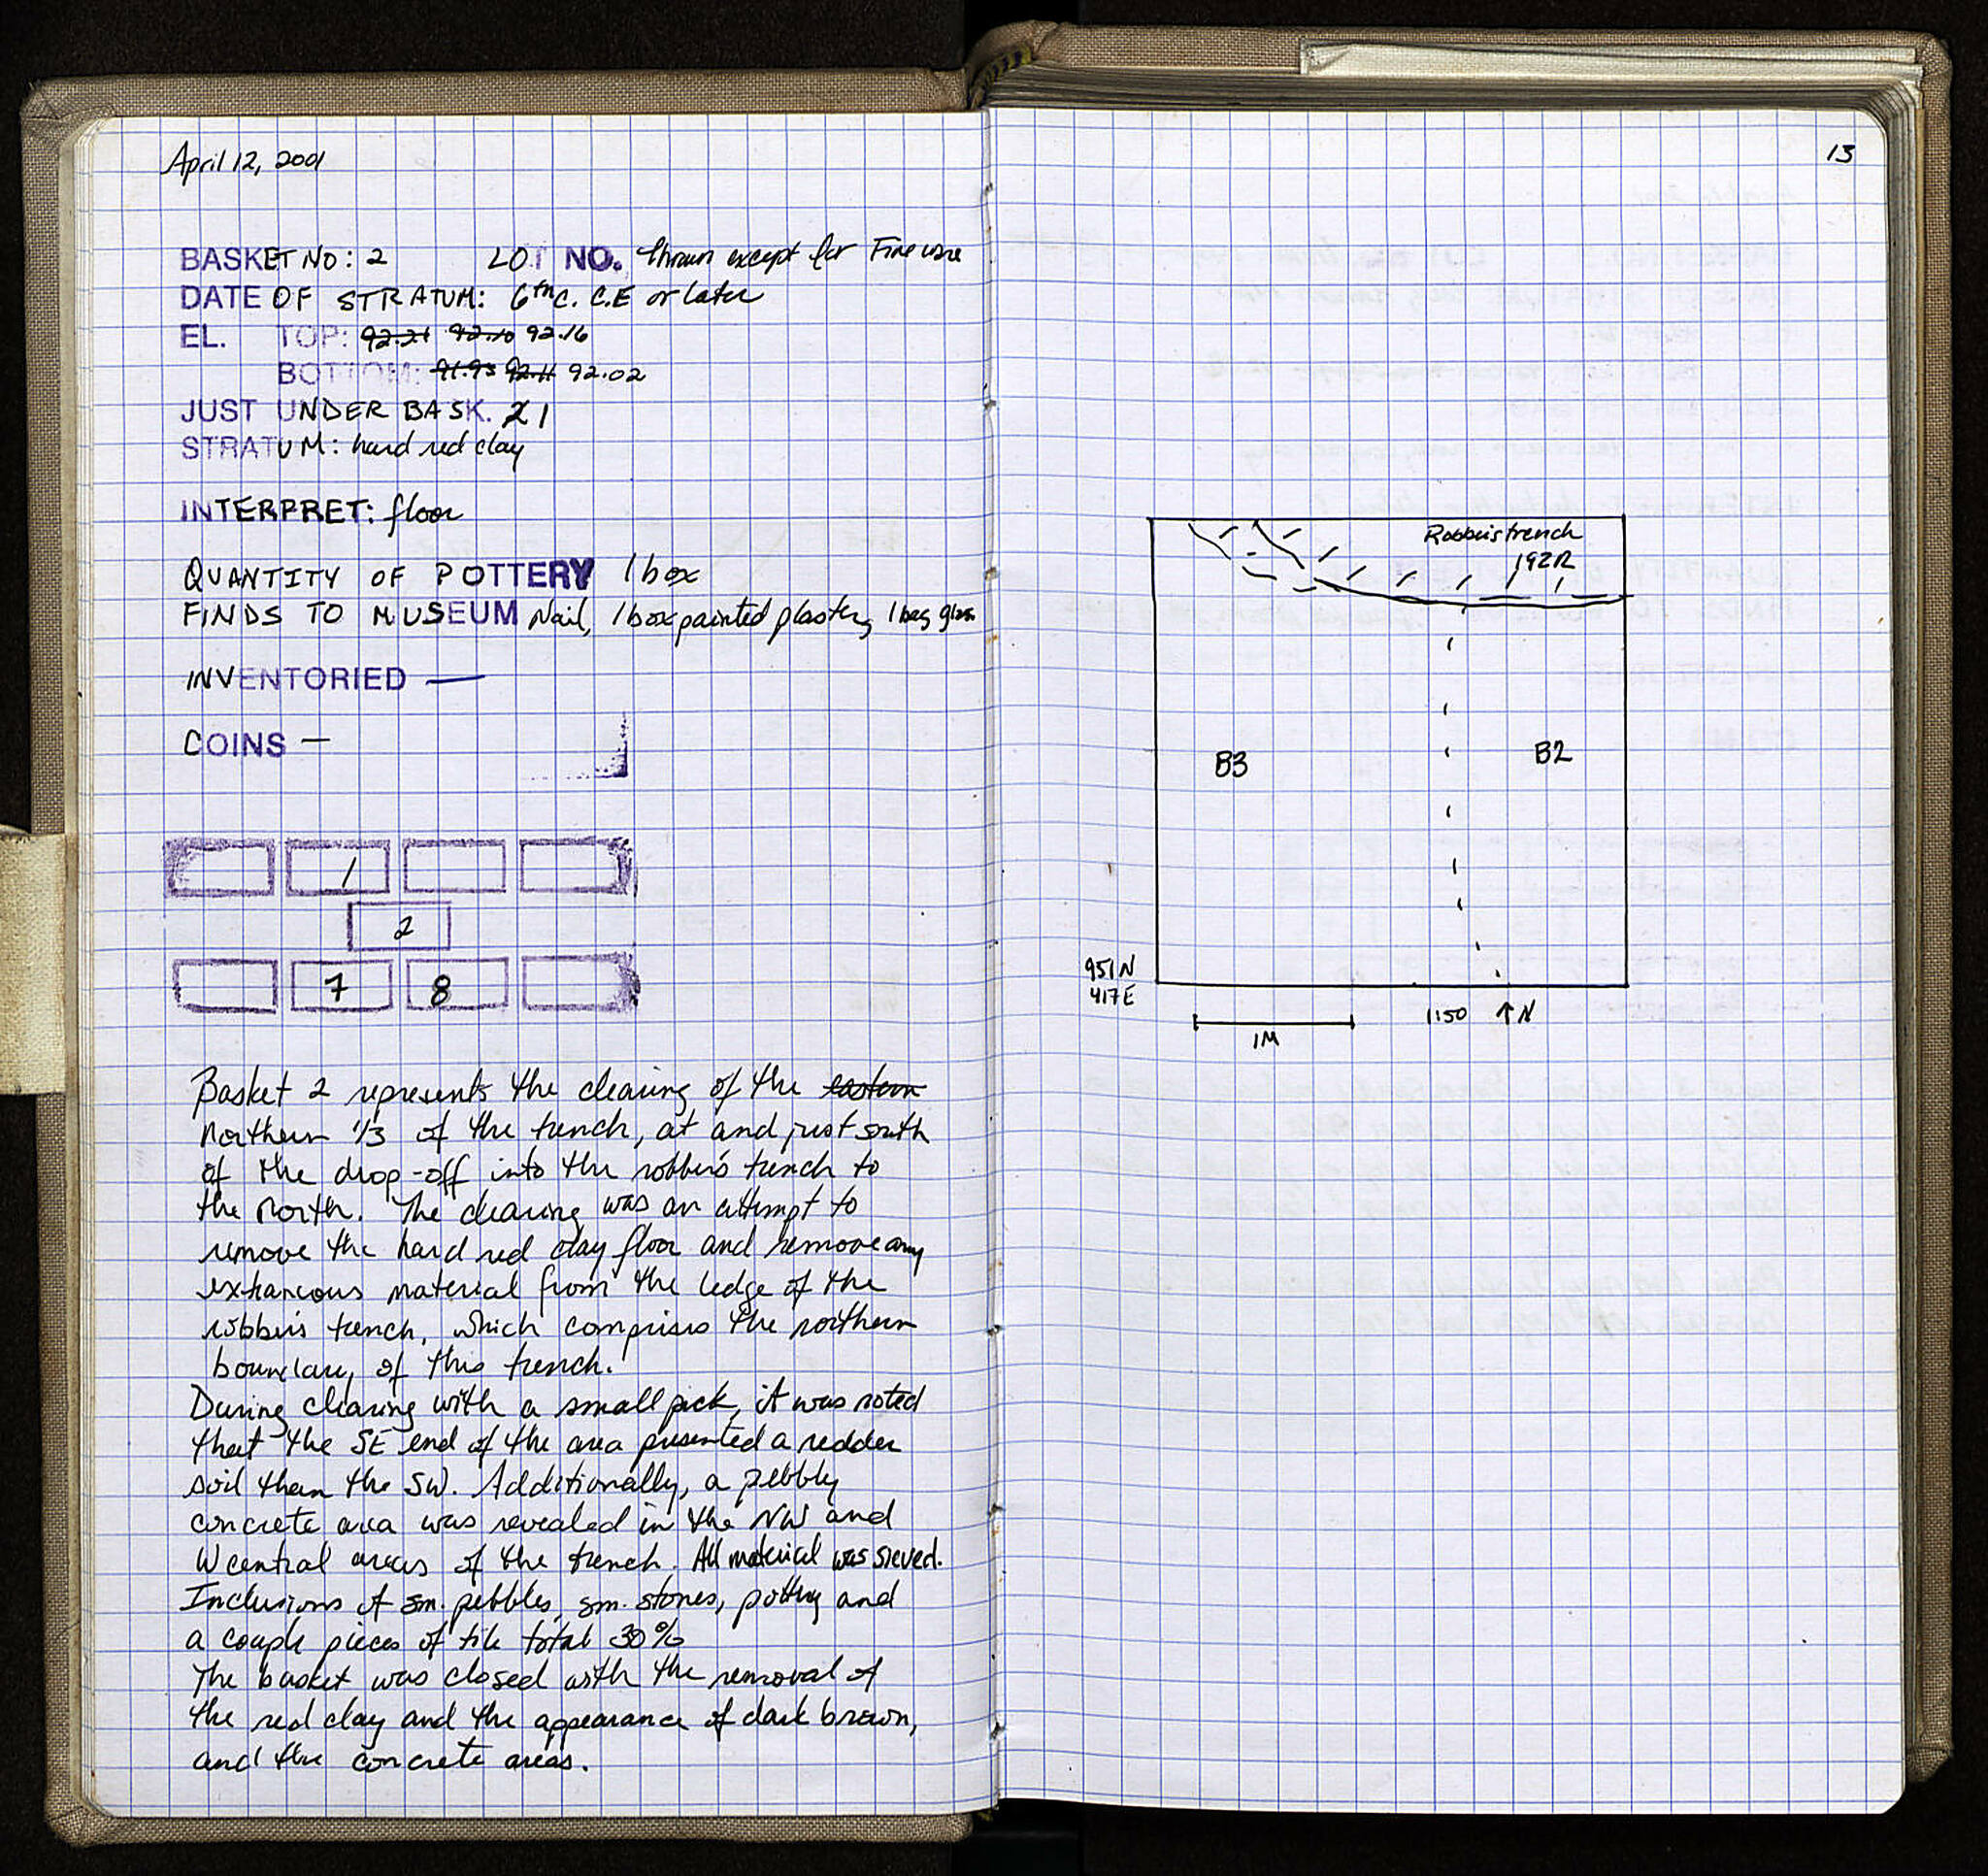 April 12, 2001
BASKET NO: 2 LOT NO. thrown except for Fine ware
DATE OF STRATUM: 6th c. C.E or later
EL. TOP: 92.21 92.10 92.16
BOTTOM: 91.93 92.11 92.02
JUST UNDER BASK. 1
STRATUM: hard red clay
INTERPRET: floor
QUANTITY OF POTTERY 1 box
FINDS TO MUSEUM Nail, 1 box painted plaster, 1 bag glass
INVENTORIED —
COINS —
1
2
7 8
Basket 2 represents the clearing of the eastern
Northern 1/3 of the trench, at and just south
of the drop-off into the robber's trench to
the North. The clearing was an attempt to
remove the hard red clay floor and remove any
extraneous material from the ledge of the
robber's trench, which comprises the northern
boundary of this trench.
During clearing with a small pick, it was noted
that the SE end of the area presented a redder
soil than the SW. Additionally, a pebbly
concrete area was revealed in the NW and
W central areas of the trench. All material was sieved.
Inclusions of sm. pebbles, sm. stones, pottery and
a couple pieces of tile total 30%
The basket was closed with the removal of
the red clay and the appearance of dark brown,
and the concrete areas.
13
Robber's trench
192R
B3 B2
951N
417E
1:50 ↑N
1M